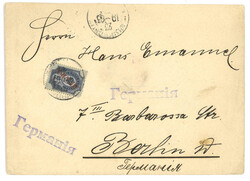 Herrn Hans Emanuel
Германія
7 III Barbarossa Str.
Германія
Berlin W.
Германія